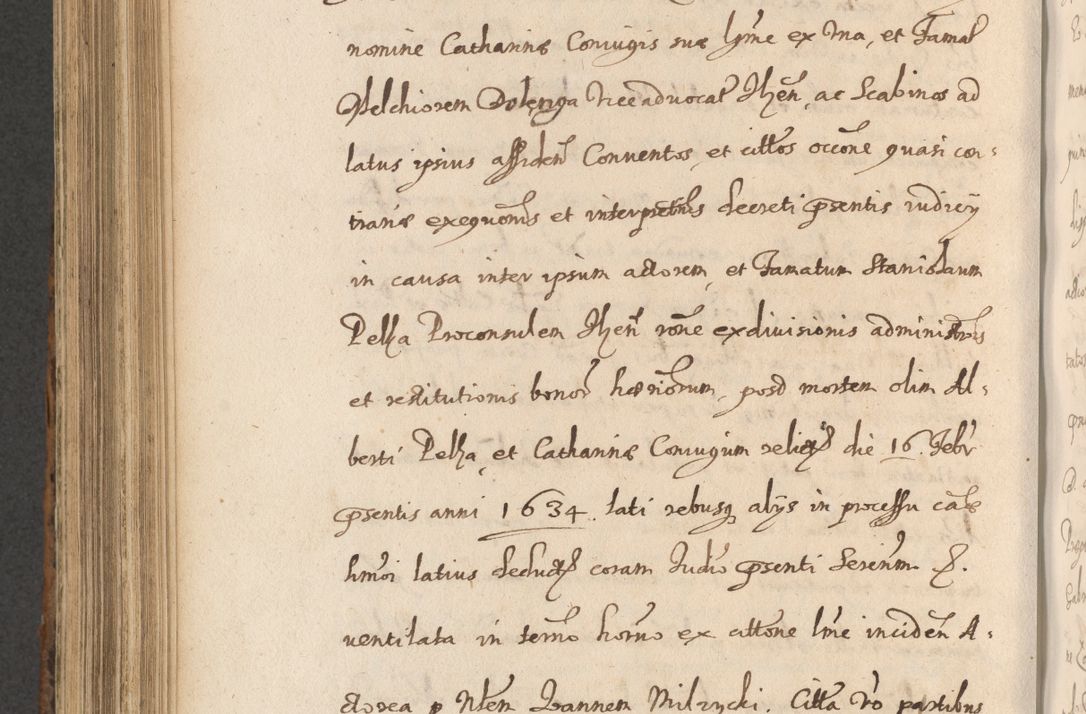 nomine Catharinæ Coniugis suæ lŕme ex Una, et Famał
Melchiorem Dolenga Viceadvocał Jhēn, ac Scabinos ad
latus ipsius assideń Conventos, et citłos occōne quasi con-
trariæ exequōnis et interpretnīs decreti psentis iudicÿ
in causa inter ipsum actorem, et Famatum Stanislaum
Pelka Proconsulem Jhēn rōne exdivisionis administrōis
et restitutionis bonoŕ hæriōrum, post mortem olim Al-
berti Pelka, et Catharinæ Coniugum relict die 16. Febr
psentis anni 1634. lati rebusq alÿs in processu caūs
hmōi latius deduct coram Judiō psenti Serenīm
ventilata in termō horńo ex citłone lŕme inciden A-
ctorea p Nłem Joannem Milzycki. Citła vŕo partibus